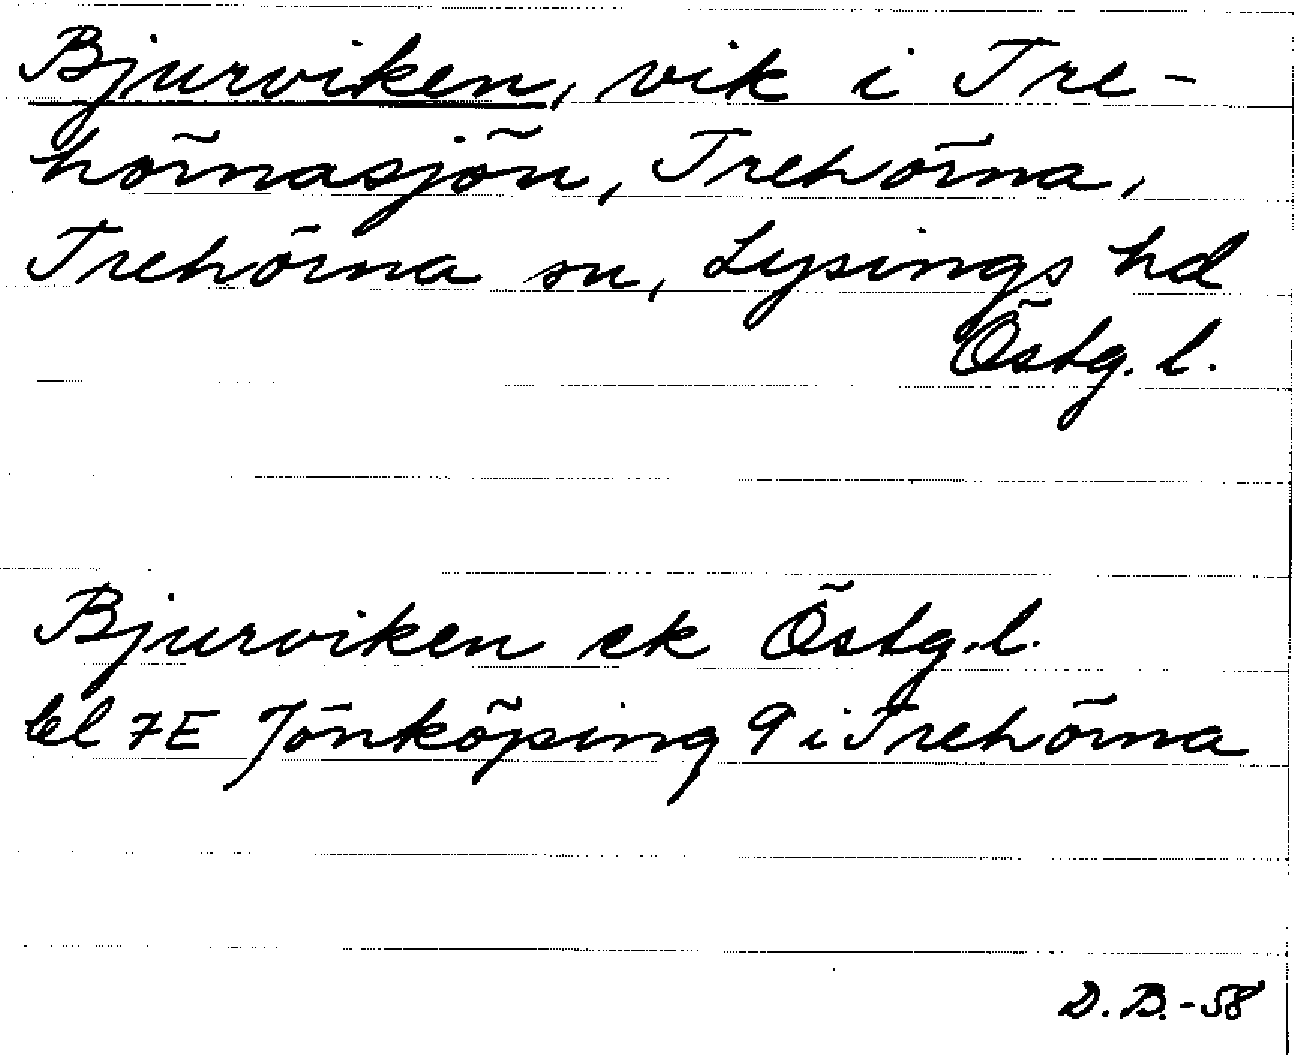 Bjurviken, vik i Tre-
hörnasjön, Trehörna,
Trehörna sn, Lysings hd
Östg. l.
Bjurviken ek Östg. l.
bl 7E Jönköping 9 i Trehörna
D. B. -58